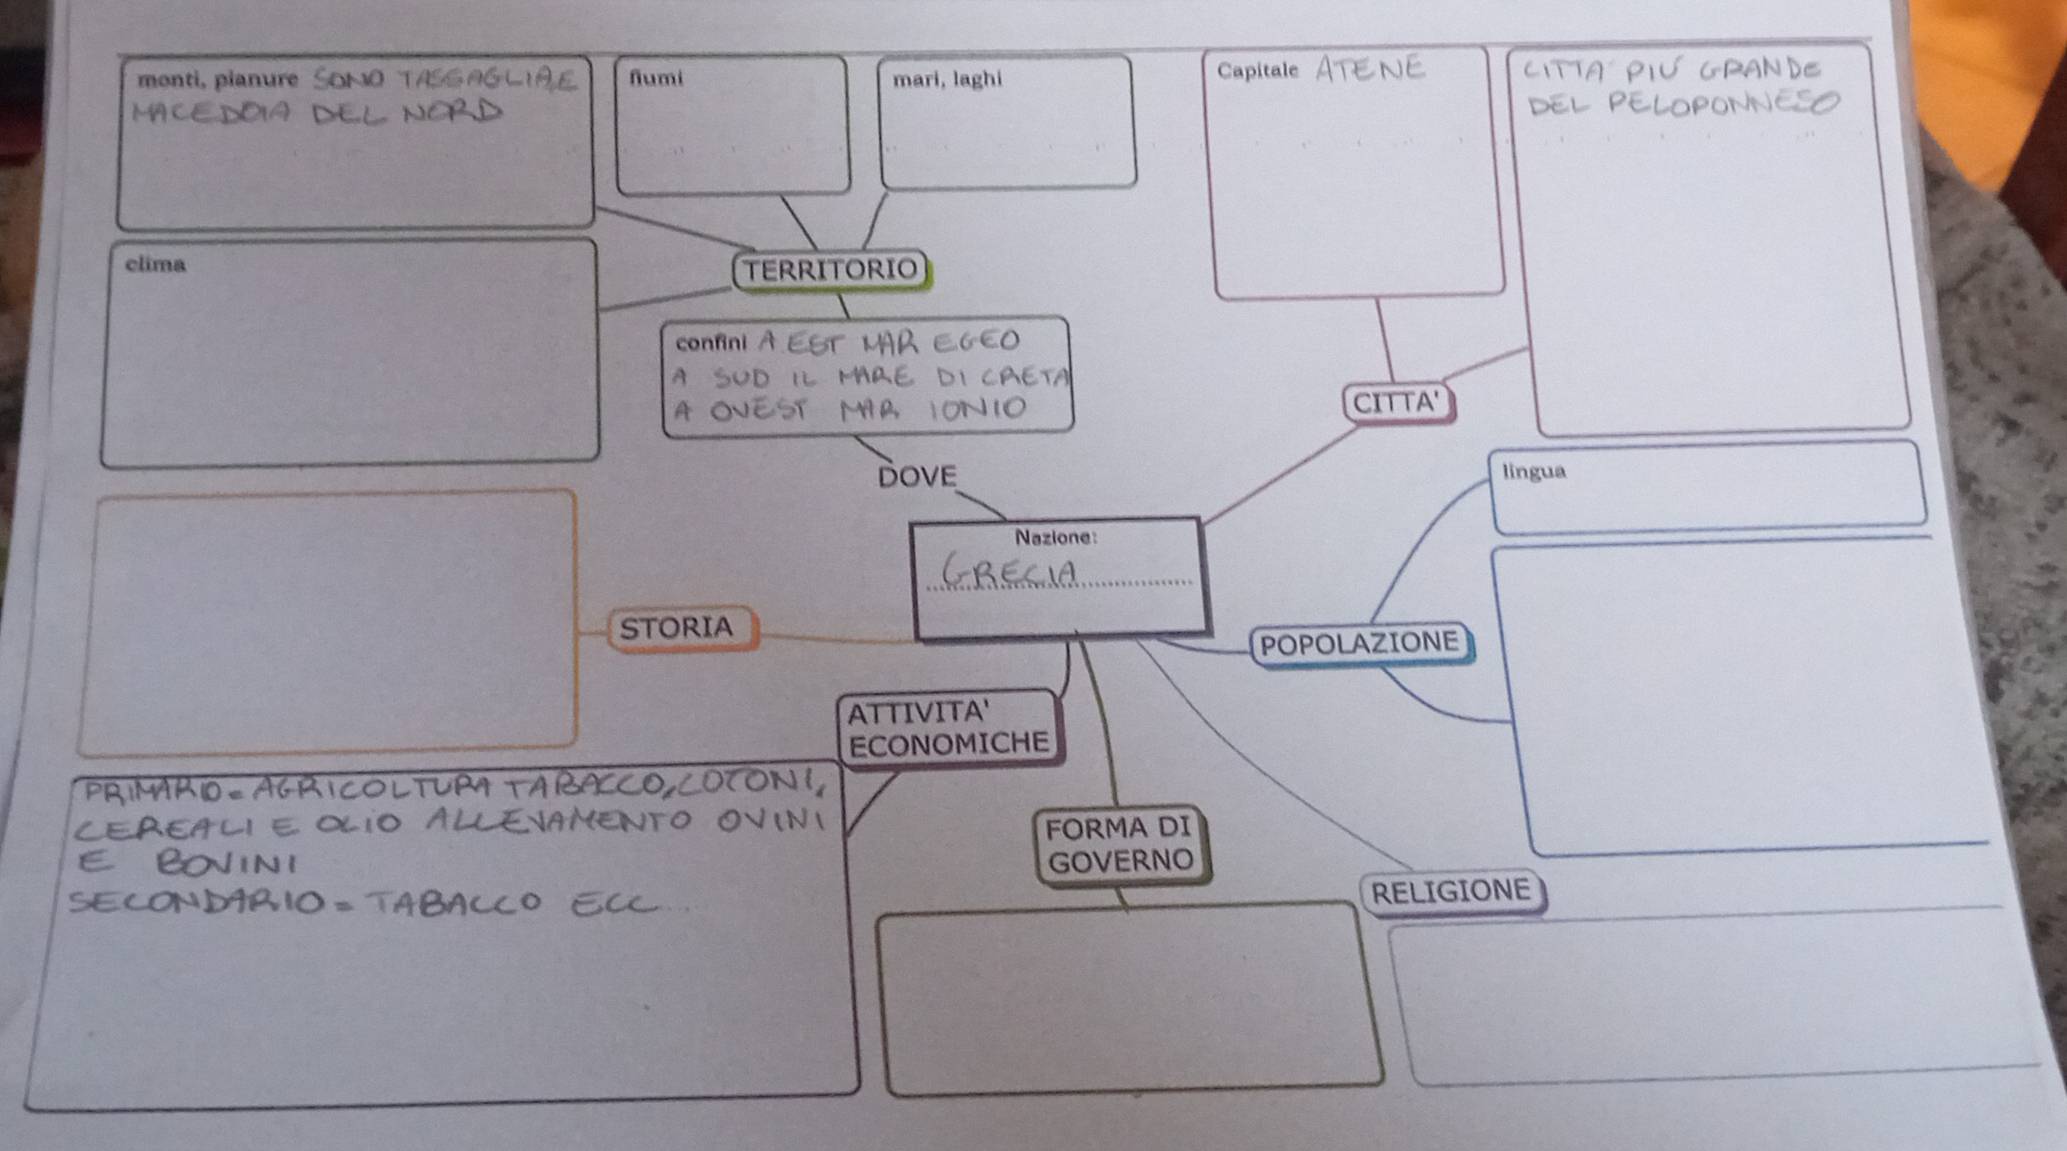 monti, pianure SONO TASSAGLIA, E
MACEDOIA DEL NORD
fiumi
mari, laghi
Capitale ATENE
CITTA' PIÚ GRANDE
DEL PELOPONNESO
clima
TERRITORIO
confini A EST MAR EGEO
A SUD IL MARE DI CRETA
A OVEST MAR IONIO
CITTA'
DOVE
lingua
Nazione:
GRECIA
STORIA
POPOLAZIONE
ATTIVITA'
ECONOMICHE
PRIMARIO= AGRICOLTURA TABACCO, COTONI,
CEREALI E OLIO ALLEVAMENTO OVINI
E BOVINI
SECONDARIO= TABACCO ECC...
FORMA DI
GOVERNO
RELIGIONE